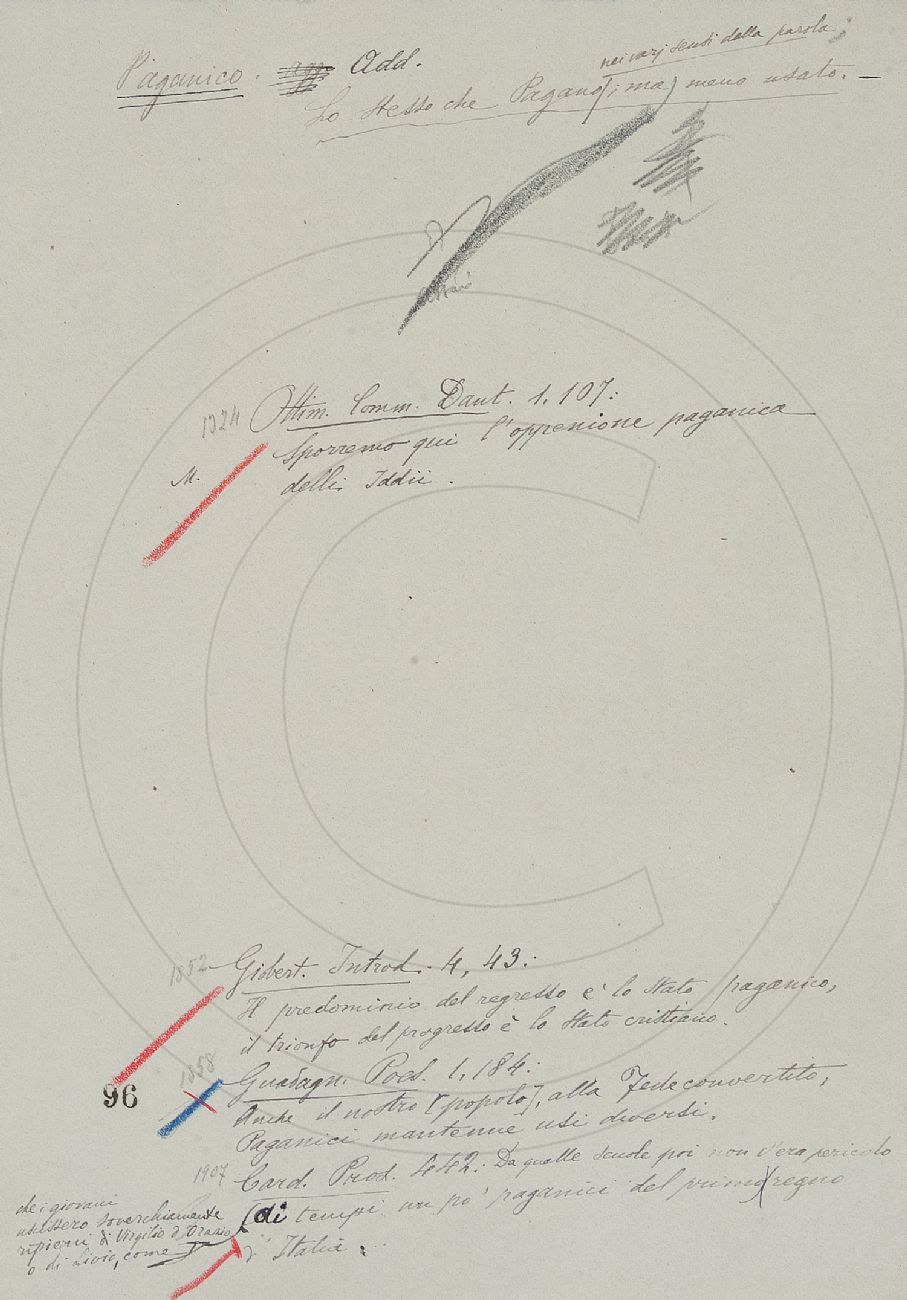 Paganico. agg. Add.
nei varj sensi della parola;
Lo stesso che Pagano; (ma) meno usato. —
1324
Ottim. Comm. Dant. 1. 107:
Sporremo qui l'oppenione paganica
M.
delli Iddii.
1852
Giobert. Introd. 4, 43:
Il predominio del regresso è lo stato paganico,
il trionfo del progresso è lo stato cristiano.
1858
Guadagn. Poes. 1, 184:
96
Anche il nostro [popolo], alla Fede convertito,
Paganici mantenne usi diversi.
1907
Card. Pros. 442: Da quelle scuole poi non v'era pericolo
che i giovani
uscissero soverchiamente
ripieni di Virgilio d'Orazio
o di Livio, come
(di tempi un po' paganici del primo regno
d'Italia: